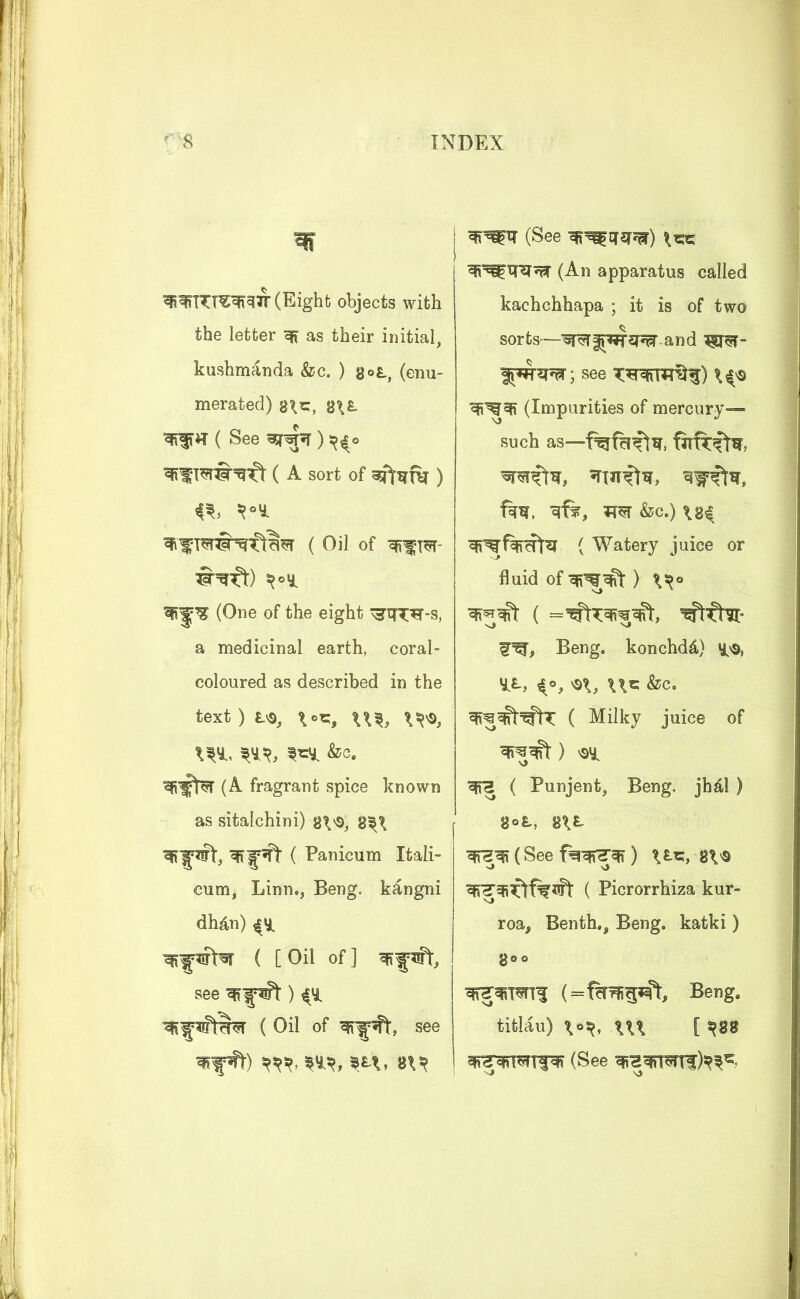 8 INDEX
क
(Eight objects with
the letter क as their initial,
kushmanda &c. ) ४०९, (enu-
merated) ४१८, ४१९
( See ) २६०
( A sort of )
६३, २०५
( Oil of
) २०५
कङ्कुष्ठ (One of the eight उपरस-s,
a medicinal earth, coral-
coloured as described in the
text ) ९७, १०८, ११३, १२७,
१३५, ३५२, ३८५ &c.
कङ्कोल (A fragrant spice known
as sitalchini) ४१७, ४३१
कङ्गुणी, कङ्गुनी ( Panicum Itali-
cum, Linn., Beng. kángni
dhán) ६५
( [Oil of] कङ्गुणी,
see कङ्गुनी ) ६५
कङ्गुणीतैल ( Oil of कङ्गुनी, see
कङ्गुनी) २२२, ३५२, ३९१, ४१२
कच्छप (See कच्छपयन्त्र) १८८
कच्छपयन्त्र (An apparatus called
kachchhapa ; it is of two
sorts—जलकूर्मयन्त्र and स्थल-
कूर्मयन्त्र; see रसकामधेनु) १६७
कञ्चुक (Impurities of mercury—
such as— गिरिदोष,
नागदोष, वङ्गदोष,
विष, वह्नि, मल &c.) १४६
कञ्चुकितोय ( Watery juice or
fluid of कञ्चुकी ) १२०
कञ्चुकी ( =क्षीरकञ्चुकी, क्षीरीश-
वृक्ष, Beng. konchdá) ५७,
५९, ६०, ७१, ११८ &c.
कञ्चुकीक्षीर ( Milky juice of
कञ्चुकी ) ७५
कटु ( Punjent, Beng. jhál )
४०९, ४१९
कटुक (See त्रिकटुक ) १९८, ४१७
कटुकरोहिणी ( Picrorrhiza kur-
roa, Benth., Beng. katki )
४००
कटुकालाबु (=तिक्ततुम्बी, Beng.
titláu) १०२, १११ [ २४४
कटुकालाबुक (See कटुकालाबु)२३८.